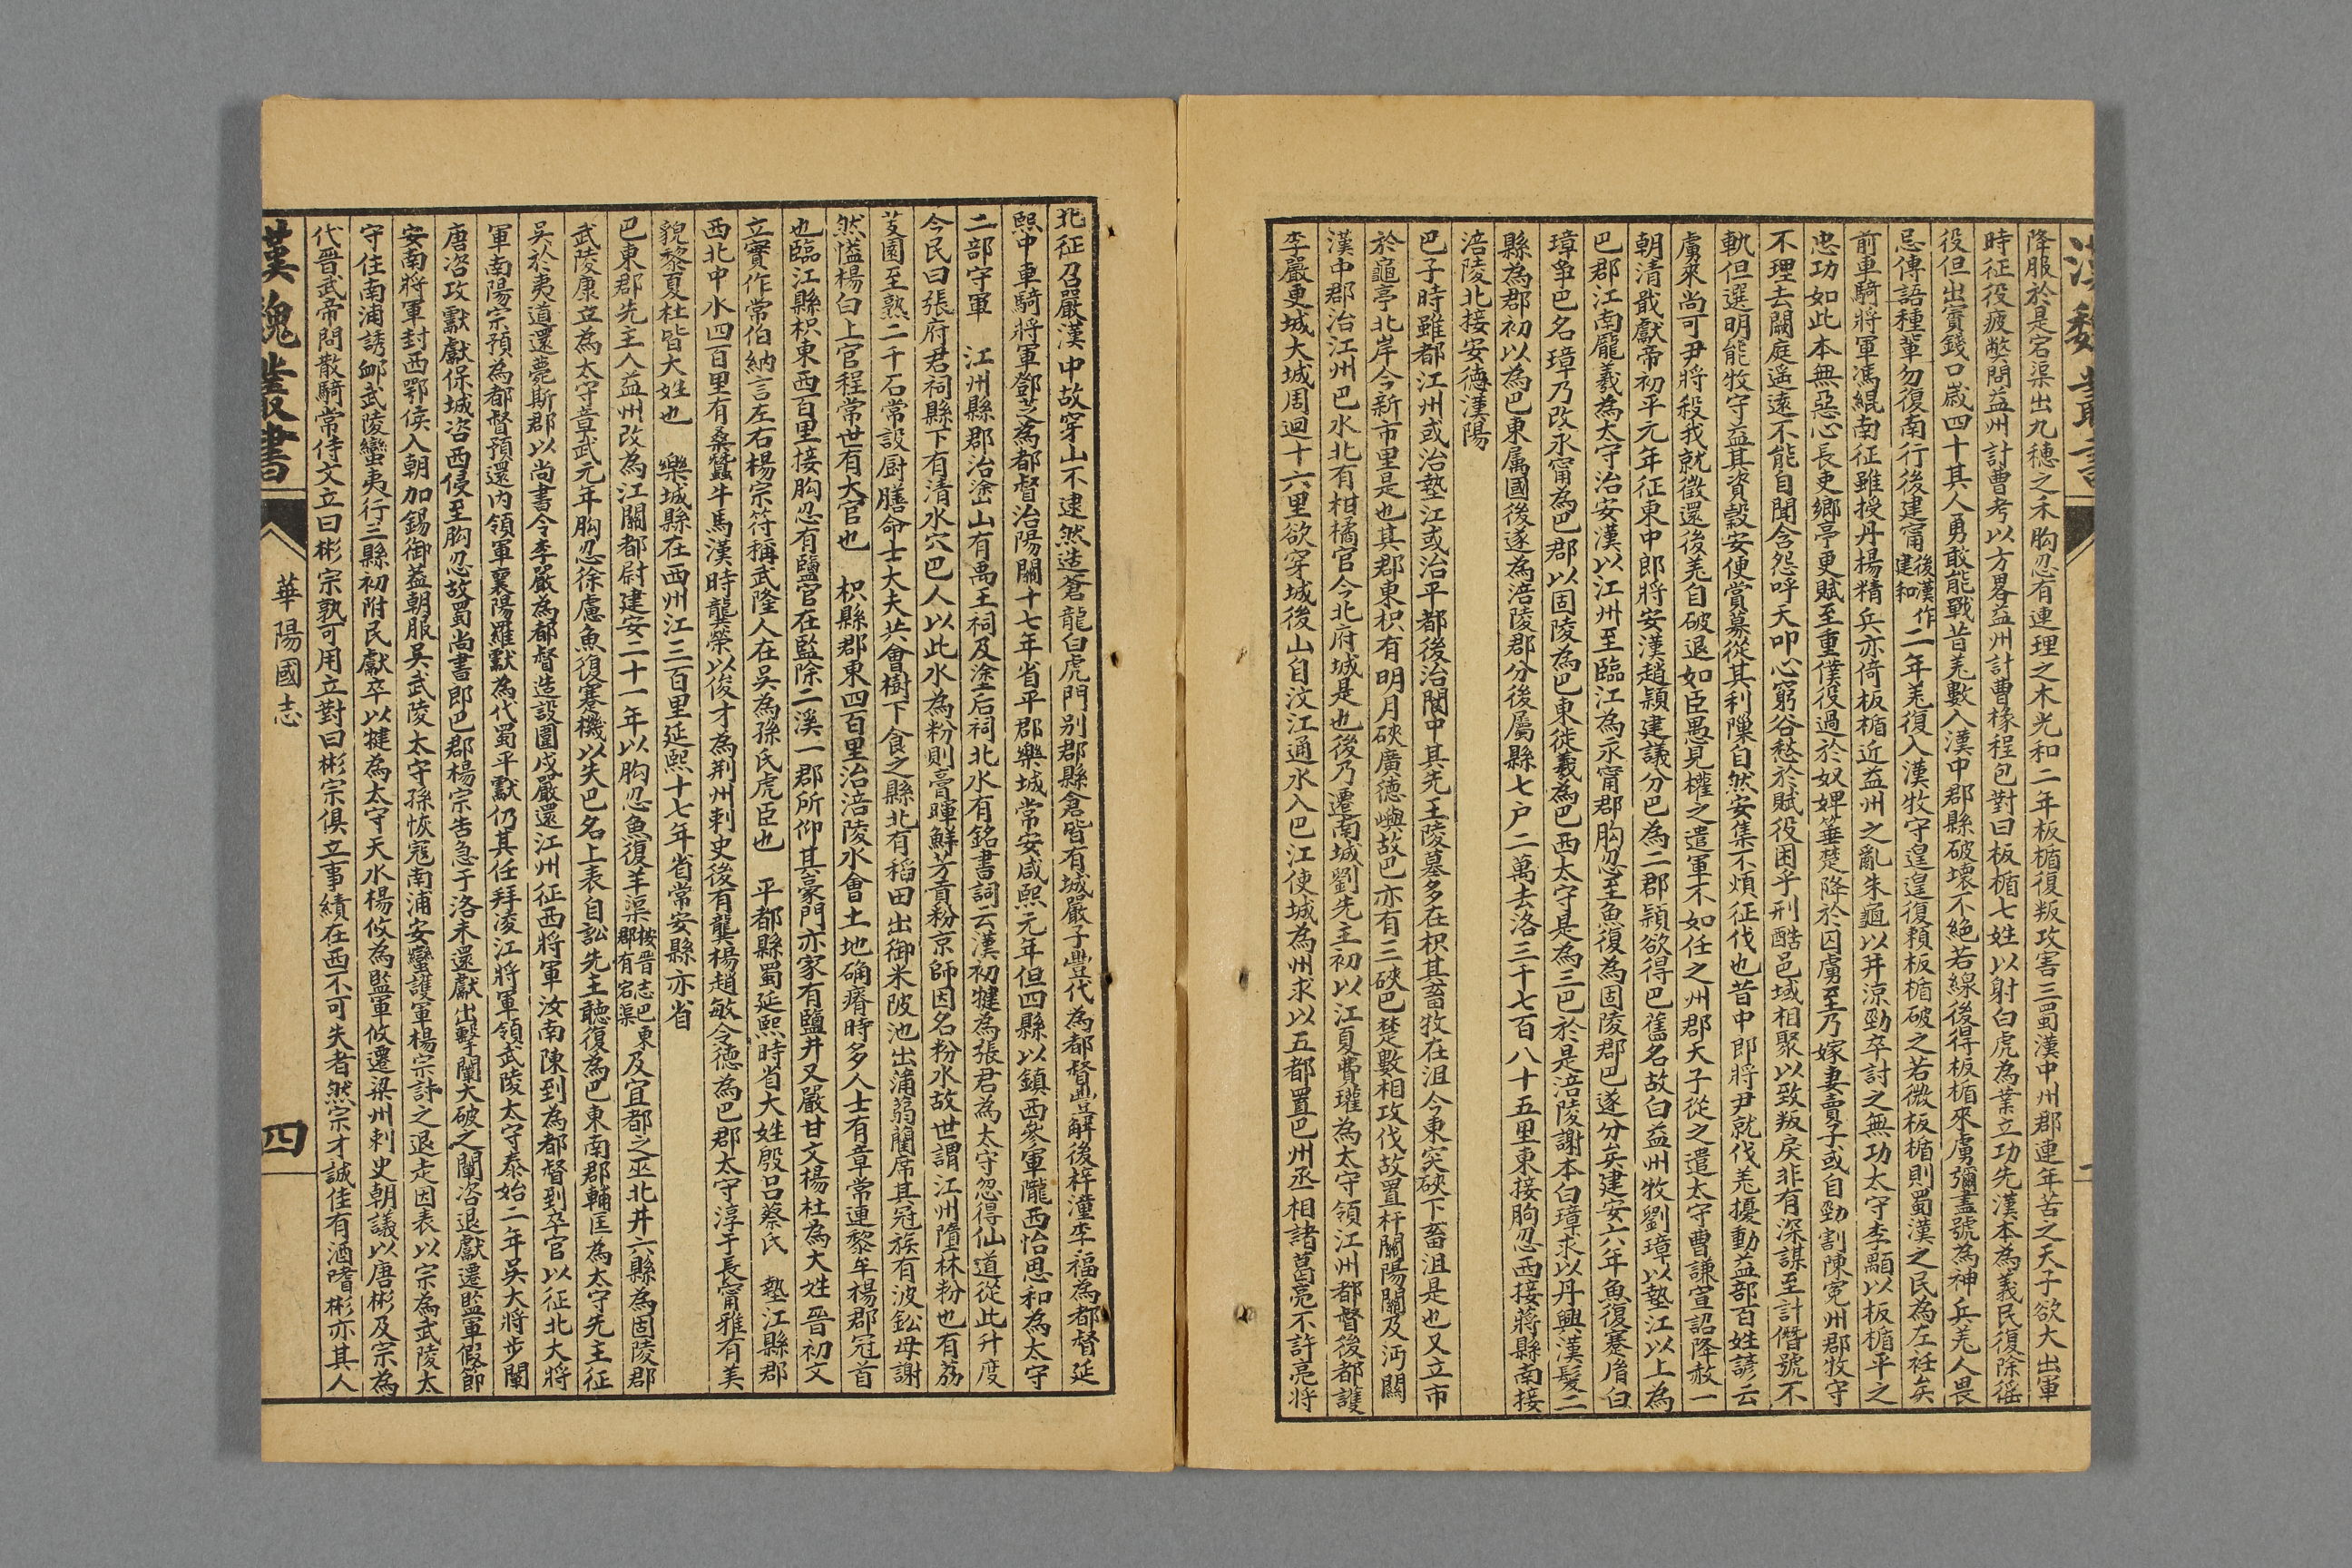 漢魏叢書
降服於是宕渠出九穗之禾朐忍有連理之木光和二年板楯復叛攻害三蜀漢中州郡連年苦之天子欲大出軍
時征役疲弊問益州計曹考以方畧益州計曹椽程包對曰板楯七姓以射白虎為業立功先漢本為義民復除徭
役但出賨錢口嵗四十其人勇敢能戰昔羌數入漢中郡縣破壞不絶若線後得板楯來虜彌盡號為神兵羌人畏
忌傳語種輩勿復南行後建甯後漢作建和二年羌復入漢牧守遑遑復賴板楯破之若微板楯則蜀漢之民為左衽矣
前車騎將軍馮緄南征雖授丹楊精兵亦倚板楯近益州之亂朱龜以并涼勁卒討之無功太守李顒以板楯平之
忠功如此本無惡心長吏鄉亭更賦至重僕役過於奴婢箠楚降於囚虜至乃嫁妻賣子或自剄割陳寃州郡牧守
不理去闕庭遥遠不能自聞含怨呼天叩心窮谷愁於賦役困乎刑酷邑域相聚以致叛戾非有深謀至計僭號不
軌但選明能牧守益其資穀安便賞募從其利隟自然安集不煩征伐也昔中郎將尹就伐羌擾動益部百姓諺云
虜來尚可尹將殺我就徵還後羌自破退如臣愚見權之遣軍不如任之州郡天子從之遣太守曹謙宣詔降赦一
朝清戢獻帝初平元年征東中郎將安漢趙穎建議分巴為二郡穎欲得巴舊名故白益州牧劉璋以墊江以上為
巴郡江南龐羲為太守治安漢以江州至臨江為永甯郡朐忍至魚復為固陵郡巴遂分矣建安六年魚復蹇胤白
璋爭巴名璋乃改永甯為巴郡以固陵為巴東徙羲為巴西太守是為三巴於是涪陵謝本白璋求以丹興漢髮二
縣為郡初以為巴東属國後遂為涪陵郡分後屬縣七户二萬去洛三千七百八十五里東接朐忍西接蔣縣南接
涪陵北接安德漢陽
巴子時雖都江州或治墊江或治平都後治閬中其先王陵墓多在枳其畜牧在沮今東突硤下畜沮是也又立市
於龜亭北岸今新市里是也其郡東枳有明月硤廣德嶼故巴亦有三硤巴楚數相攻伐故置杆關陽關及沔關
漢中郡治江州巴水北有柑橘官今北府城是也後乃遷南城劉先主初以江夏費瓘為太守領江州都督後都護
李嚴更城大城周迴十六里欲穿城後山自汶江通水入巴江使城為州求以五都置巴州丞相諸葛亮不許亮將
北征召嚴漢中故穿山不逮然造蒼龍白虎門别郡縣倉皆有城嚴子豐代為都督豐解後梓潼李福為都督延
熙中車騎將軍鄧芝為都督治陽關十七年省平郡樂城常安咸熙元年但四縣以鎮西參軍隴西怡思和為太守
二部守軍　江州縣郡治塗山有禹王祠及塗后祠北水有銘書詞云漢初犍為張君為太守忽得仙道從此升度
今民曰張府君祠縣下有清水穴巴人以此水為粉則膏暉鮮芳貢粉京師因名粉水故世謂江州墮林粉也有荔
芰園至熟二千石常設厨膳命士大夫共會樹下食之縣北有稻田出御米陂池出蒲蒻藺席其冠族有波鈆毋謝
然愖楊白上官程常世有大官也　枳縣郡東四百里治涪陵水會土地确瘠時多人士有章常連黎牟楊郡冠首
也臨江縣枳東西百里接朐忍有鹽官在監除二溪一郡所仰其豪門亦家有鹽井又嚴甘文楊杜為大姓晉初文
立實作常伯納言左右楊宗符稱武隆人在吴為孫氏虎臣也　平都縣蜀延熙時省大姓殷吕蔡氏　墊江縣郡
西北中水四百里有桑蠶牛馬漢時龔榮以俊才為荆州刺史後有龔楊趙敏令德為巴郡太守淳于長甯雅有美
貌黎夏杜皆大姓也　樂城縣在西州江三百里延熙十七年省常安縣亦省
巴東郡先主入益州改為江關都尉建安二十一年以朐忍魚復羊渠按晉志巴東郡有宕渠及宜都之巫北井六縣為固陵郡
武陵康立為太守章武元年朐忍徐慮魚復蹇機以失巴名上表自訟先主聽復為巴東南郡輔匡為太守先主征
吳於夷道還薨斯郡以尚書令李嚴為都督造設圍戍嚴還江州征西將軍汝南陳到為都督到卒官以征北大將
軍南陽宗預為都督預還内領軍襄陽羅獻為代蜀平獻仍其任拜凌江將軍領武陵太守泰始二年吳大將步闡
唐咨攻獻獻保城咨西侵至朐忍故蜀尚書郎巴郡楊宗告急于洛未還獻出擊闡大破之闡咨退獻遷監軍假節
安南將軍封西鄂侯入朝加錫御葢朝服吳武陵太守孫恢冦南浦安蠻護軍楊宗討之退走因表以宗為武陵太
守住南浦誘䘏武陵蠻夷行三縣初附民獻卒以犍為太守天水楊攸為監軍攸遷梁州刺史朝議以唐彬及宗為
代晉武帝問散騎常侍文立曰彬宗孰可用立對曰彬宗俱立事績在西不可失者然宗才誠佳有酒嗜彬亦其人
漢魏叢書　華陽國志　四